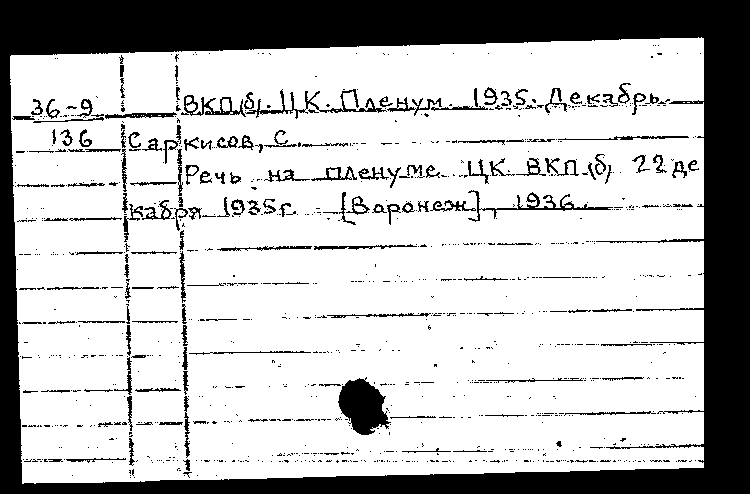 36-9 ВКП(б). ЦК. Пленум. 1935. Декабрь.
136 Саркисов, С.
Речь на пленуме ЦК ВКП(б) 22 де
кабря 1935г. [Воронеж], 1936.